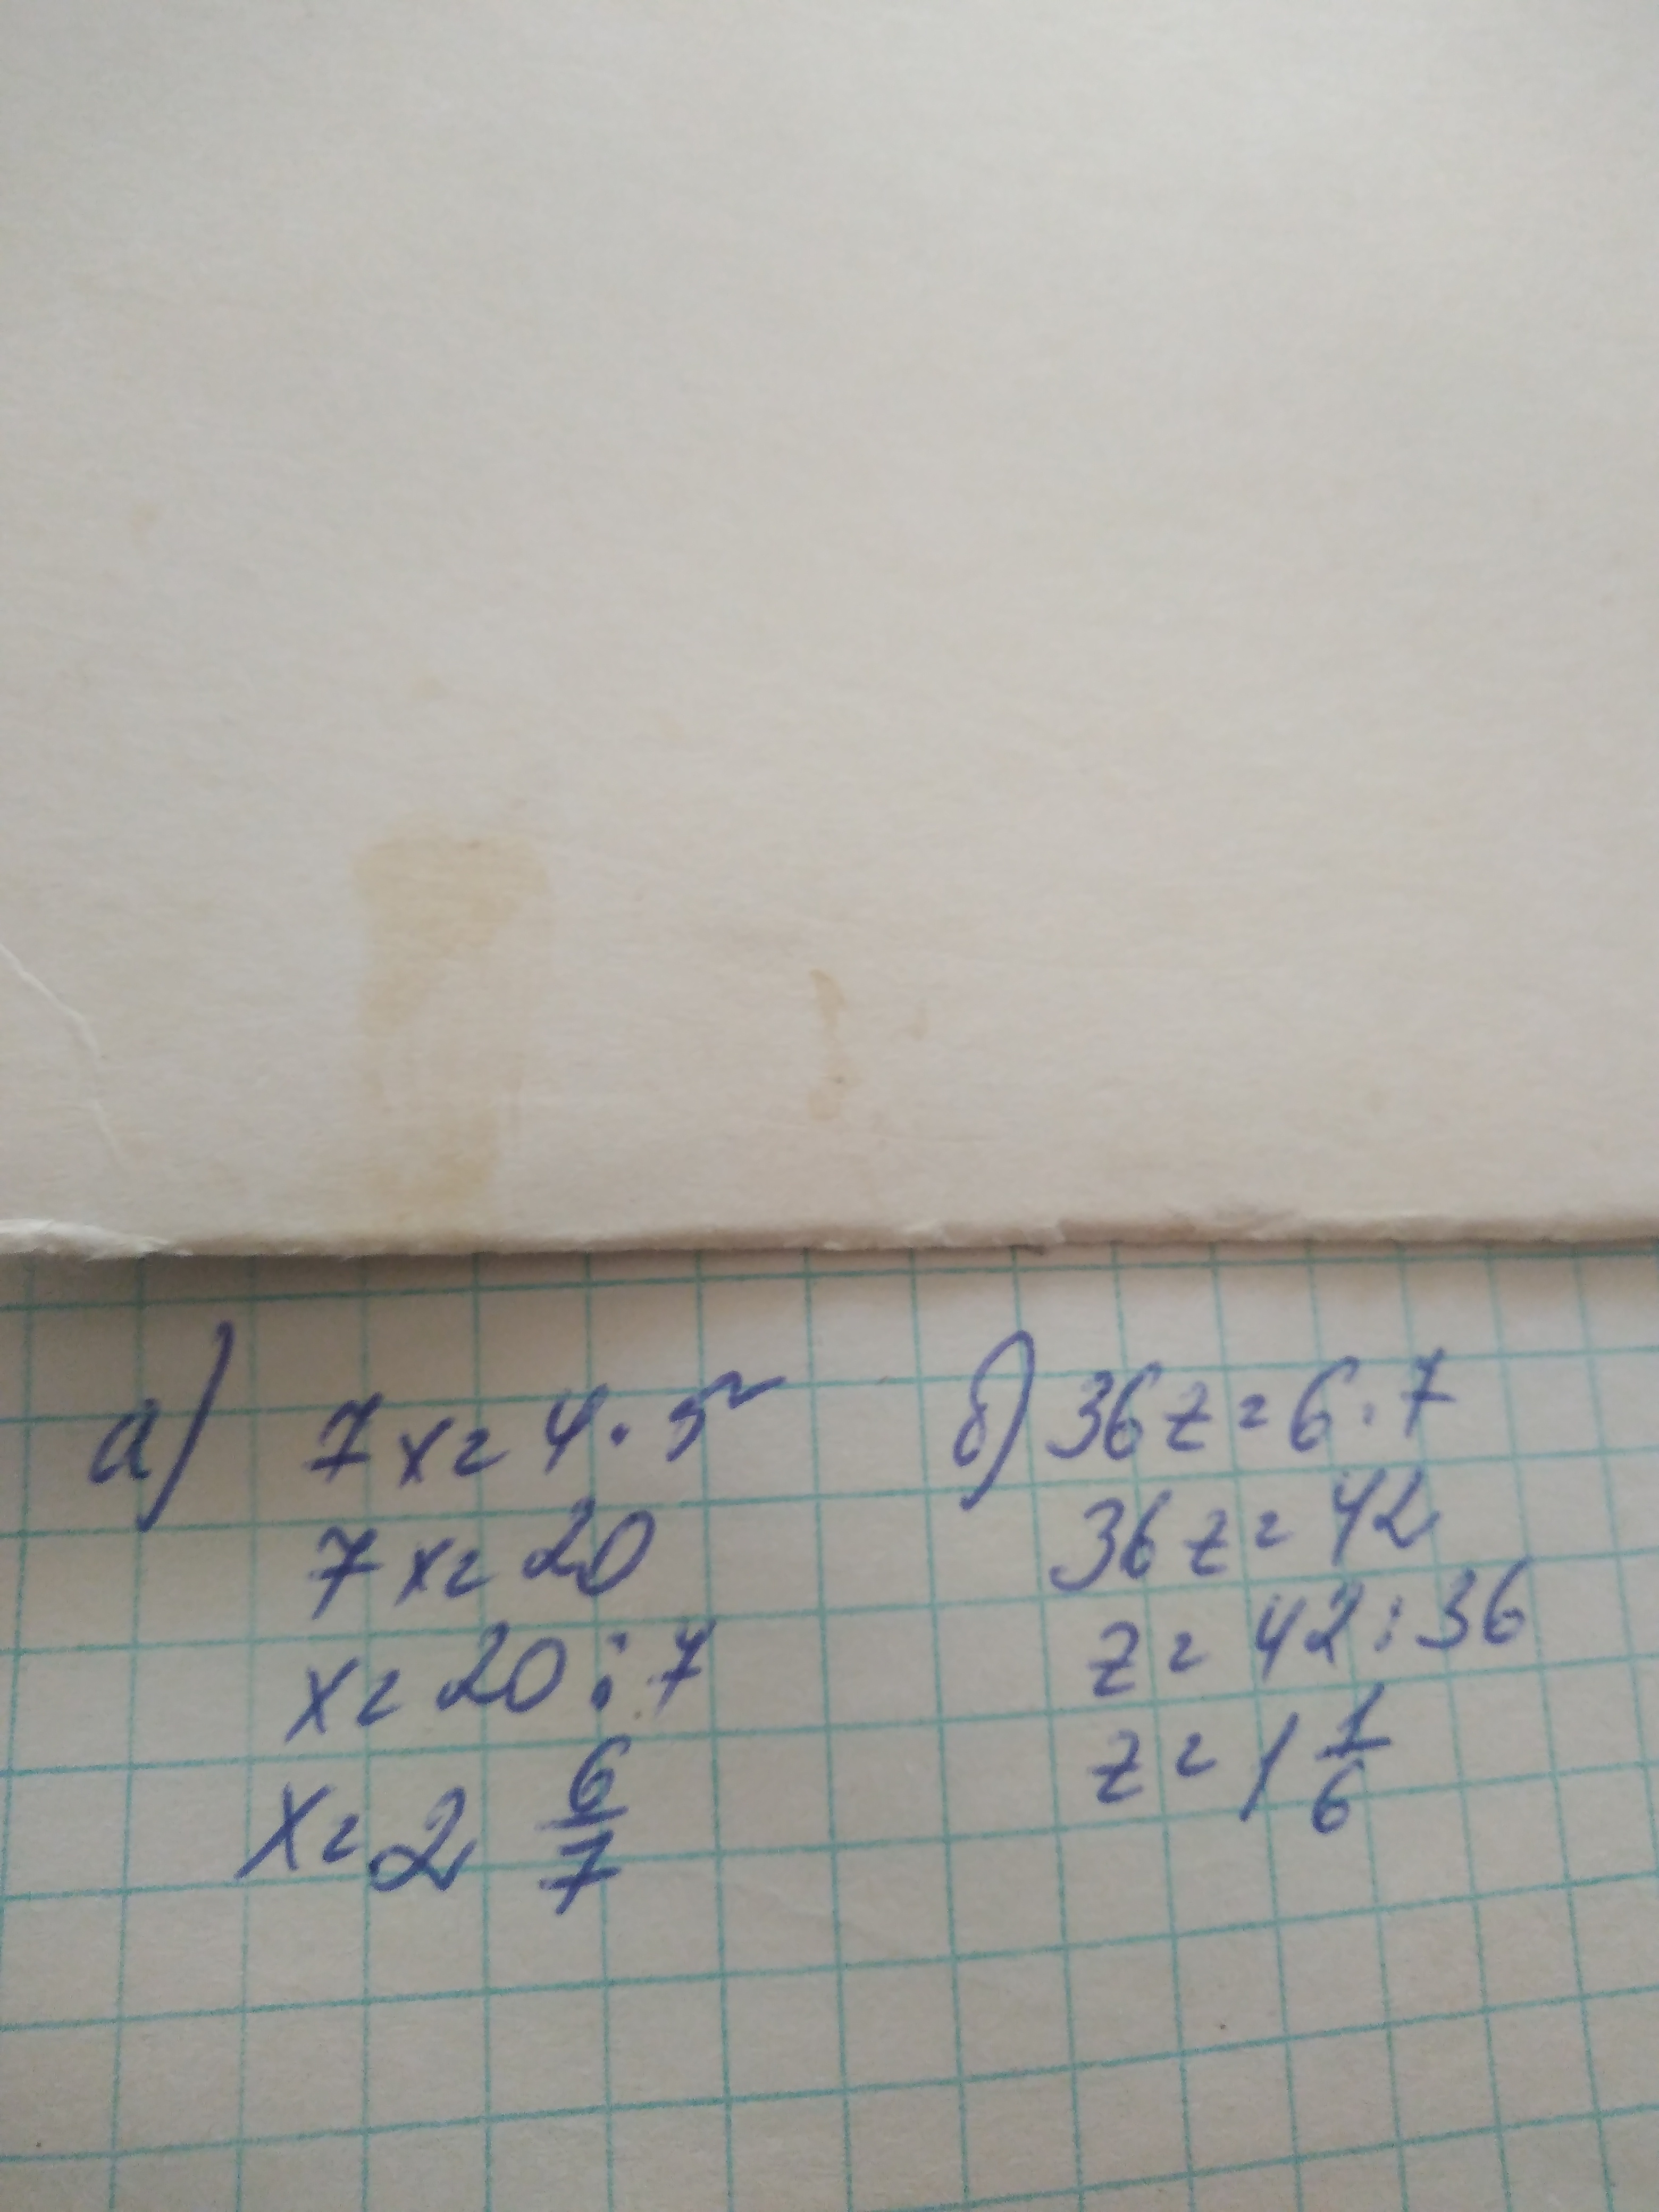 а) 7x = 4 · 5
7x = 20
x = 20 : 7
x = 2 6/7
б) 36z = 6 · 7
36z = 42
z = 42 : 36
z = 1 1/6